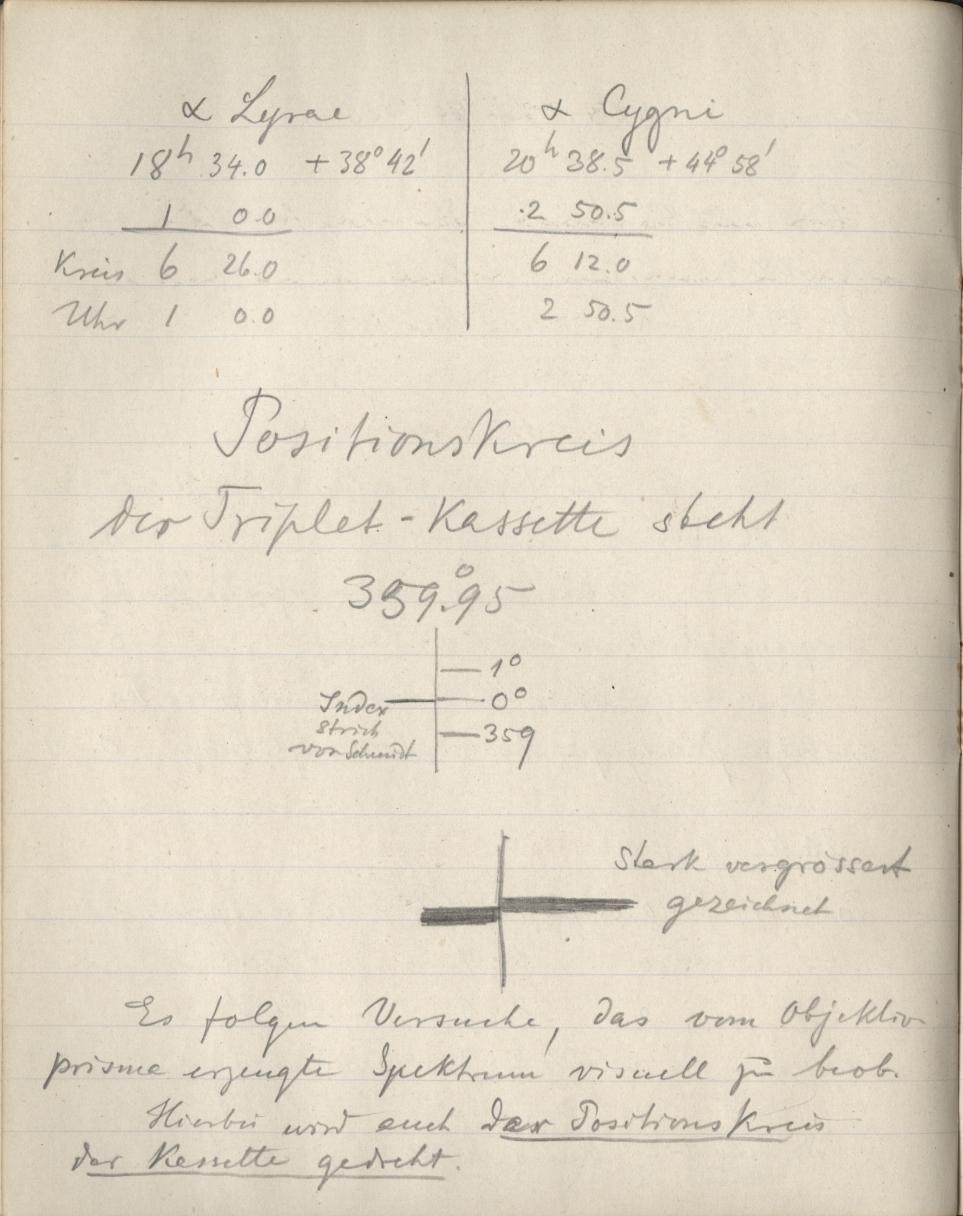 α Lyrae
18h 34.0 +38° 42'
1 0.0
Kreis 6 26.0
Uhr 1 0.0
α Cygni
20h 38.5 +44° 58'
2 50.5
6 12.0
2 50.5
Positionskreis
der Triplet-Kassette steht
359.°95
1°
Index 0°
Strich 359
von Schmidt
Stark vergrössert
gezeichnet
Es folgen Versuche, das vom Objektiv-
prisma erzeugte Spektrum visuell zu beob.
Hierbei wird auch der Positionskreis
der Kassette gedreht.